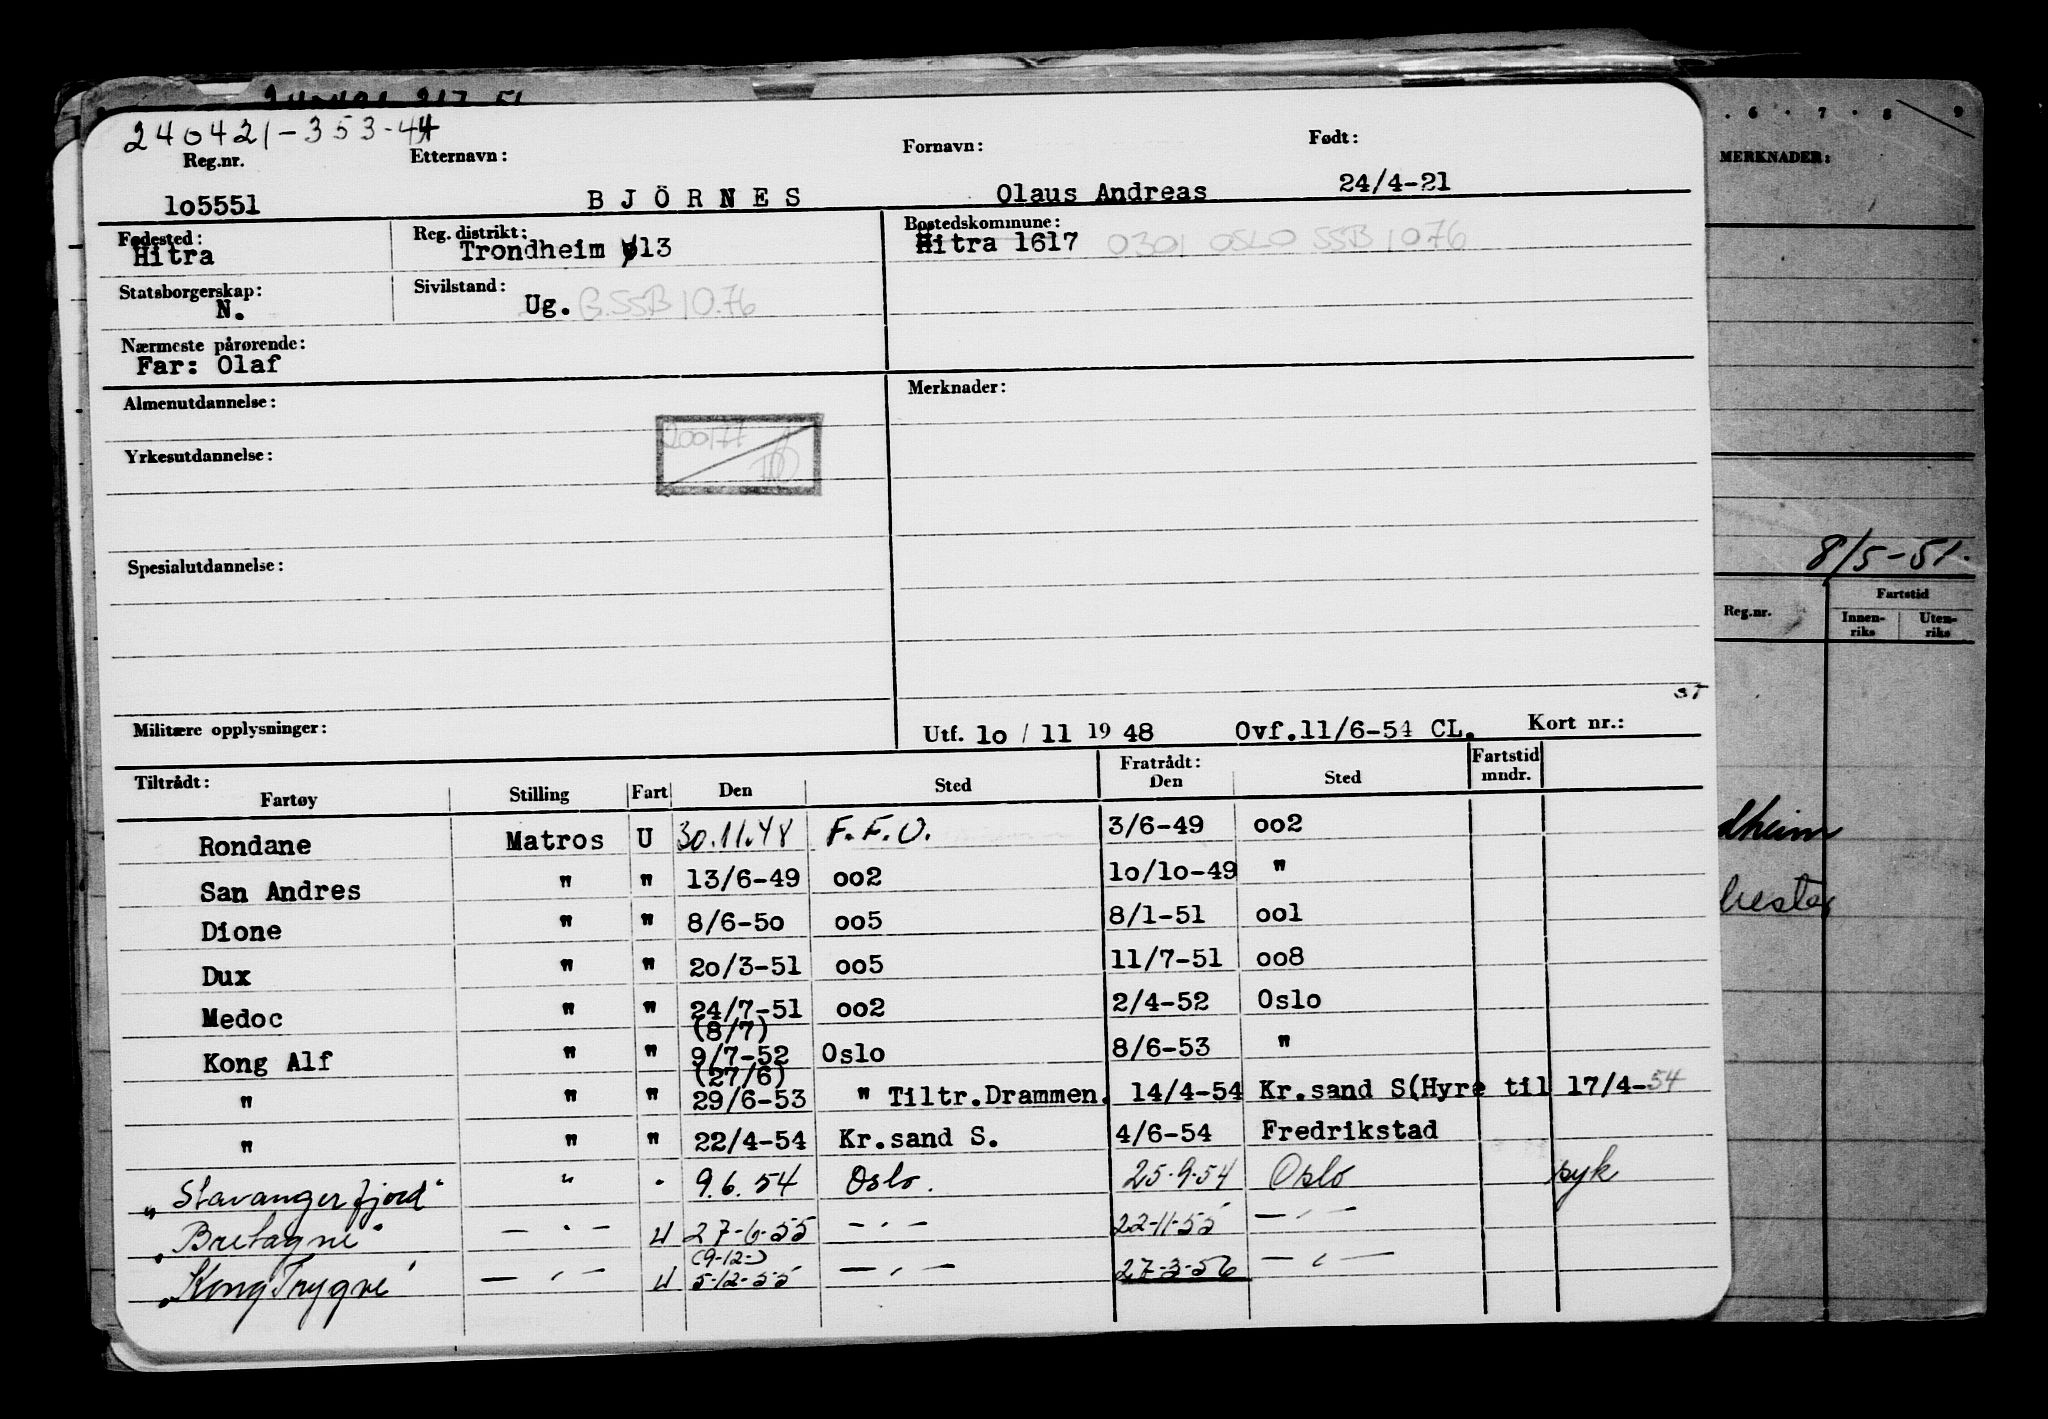 240421-353-44
Reg.nr. Etternavn: Fornavn: Født:
lo5551 BJÖRNES Olaus Andreas 24/4-21
Fødested: Reg. distrikt: Bostedskommune:
Hitra Trondheim 13 Hitra 1617 0301 OSLO SSB 1076
Statsborgerskap: Sivilstand:
N. Ug. G. SSB 10.76
Nærmeste pårørende:
Far: Olaf
Almenutdannelse: Merknader:
200177
Yrkesutdannelse:
Spesialutdannelse:
Militære opplysninger: Utf. lo / 11 19 48 Ovf.11/6-54 CL. Kort nr.:
Tiltrådt: Fratrådt: Fartstid
Fartøy Stilling Fart Den Sted Den Sted mndr.
Rondane Matros U 30.11.48 F.F.U. 3/6-49 oo2
San Andres " " 13/6-49 oo2 lo/lo-49 "
Dione " " 8/6-5o oo5 8/1-51 ool
Dux " " 2o/3-51 oo5 11/7-51 oo8
Medoc " " 24/7-51 oo2 2/4-52 Oslo
(8/7)
Kong Alf " " 9/7-52 Oslo 8/6-53 "
(27/6)
" " " 29/6-53 " Tiltr.Drammen. 14/4-54 Kr.sand S(Hyre til 17/4-54
" " " 22/4-54 Kr.sand S. 4/6-54 Fredrikstad
"Stavangerfjord" " " 9.6.54 Oslo. 25.9.54 Oslo syk
"Bretagne" — " — U 27-6-55 — " — 22-11-55 — " —
(9-12-)
"Kong Trygve" — " — U 5-12-55 — " — 27-3-56 — " —
6 . 7 . 8 9
MERKNADER:
8/5-51.
Reg.nr. Fartstid
Innen-riks Uten-riks
dheim